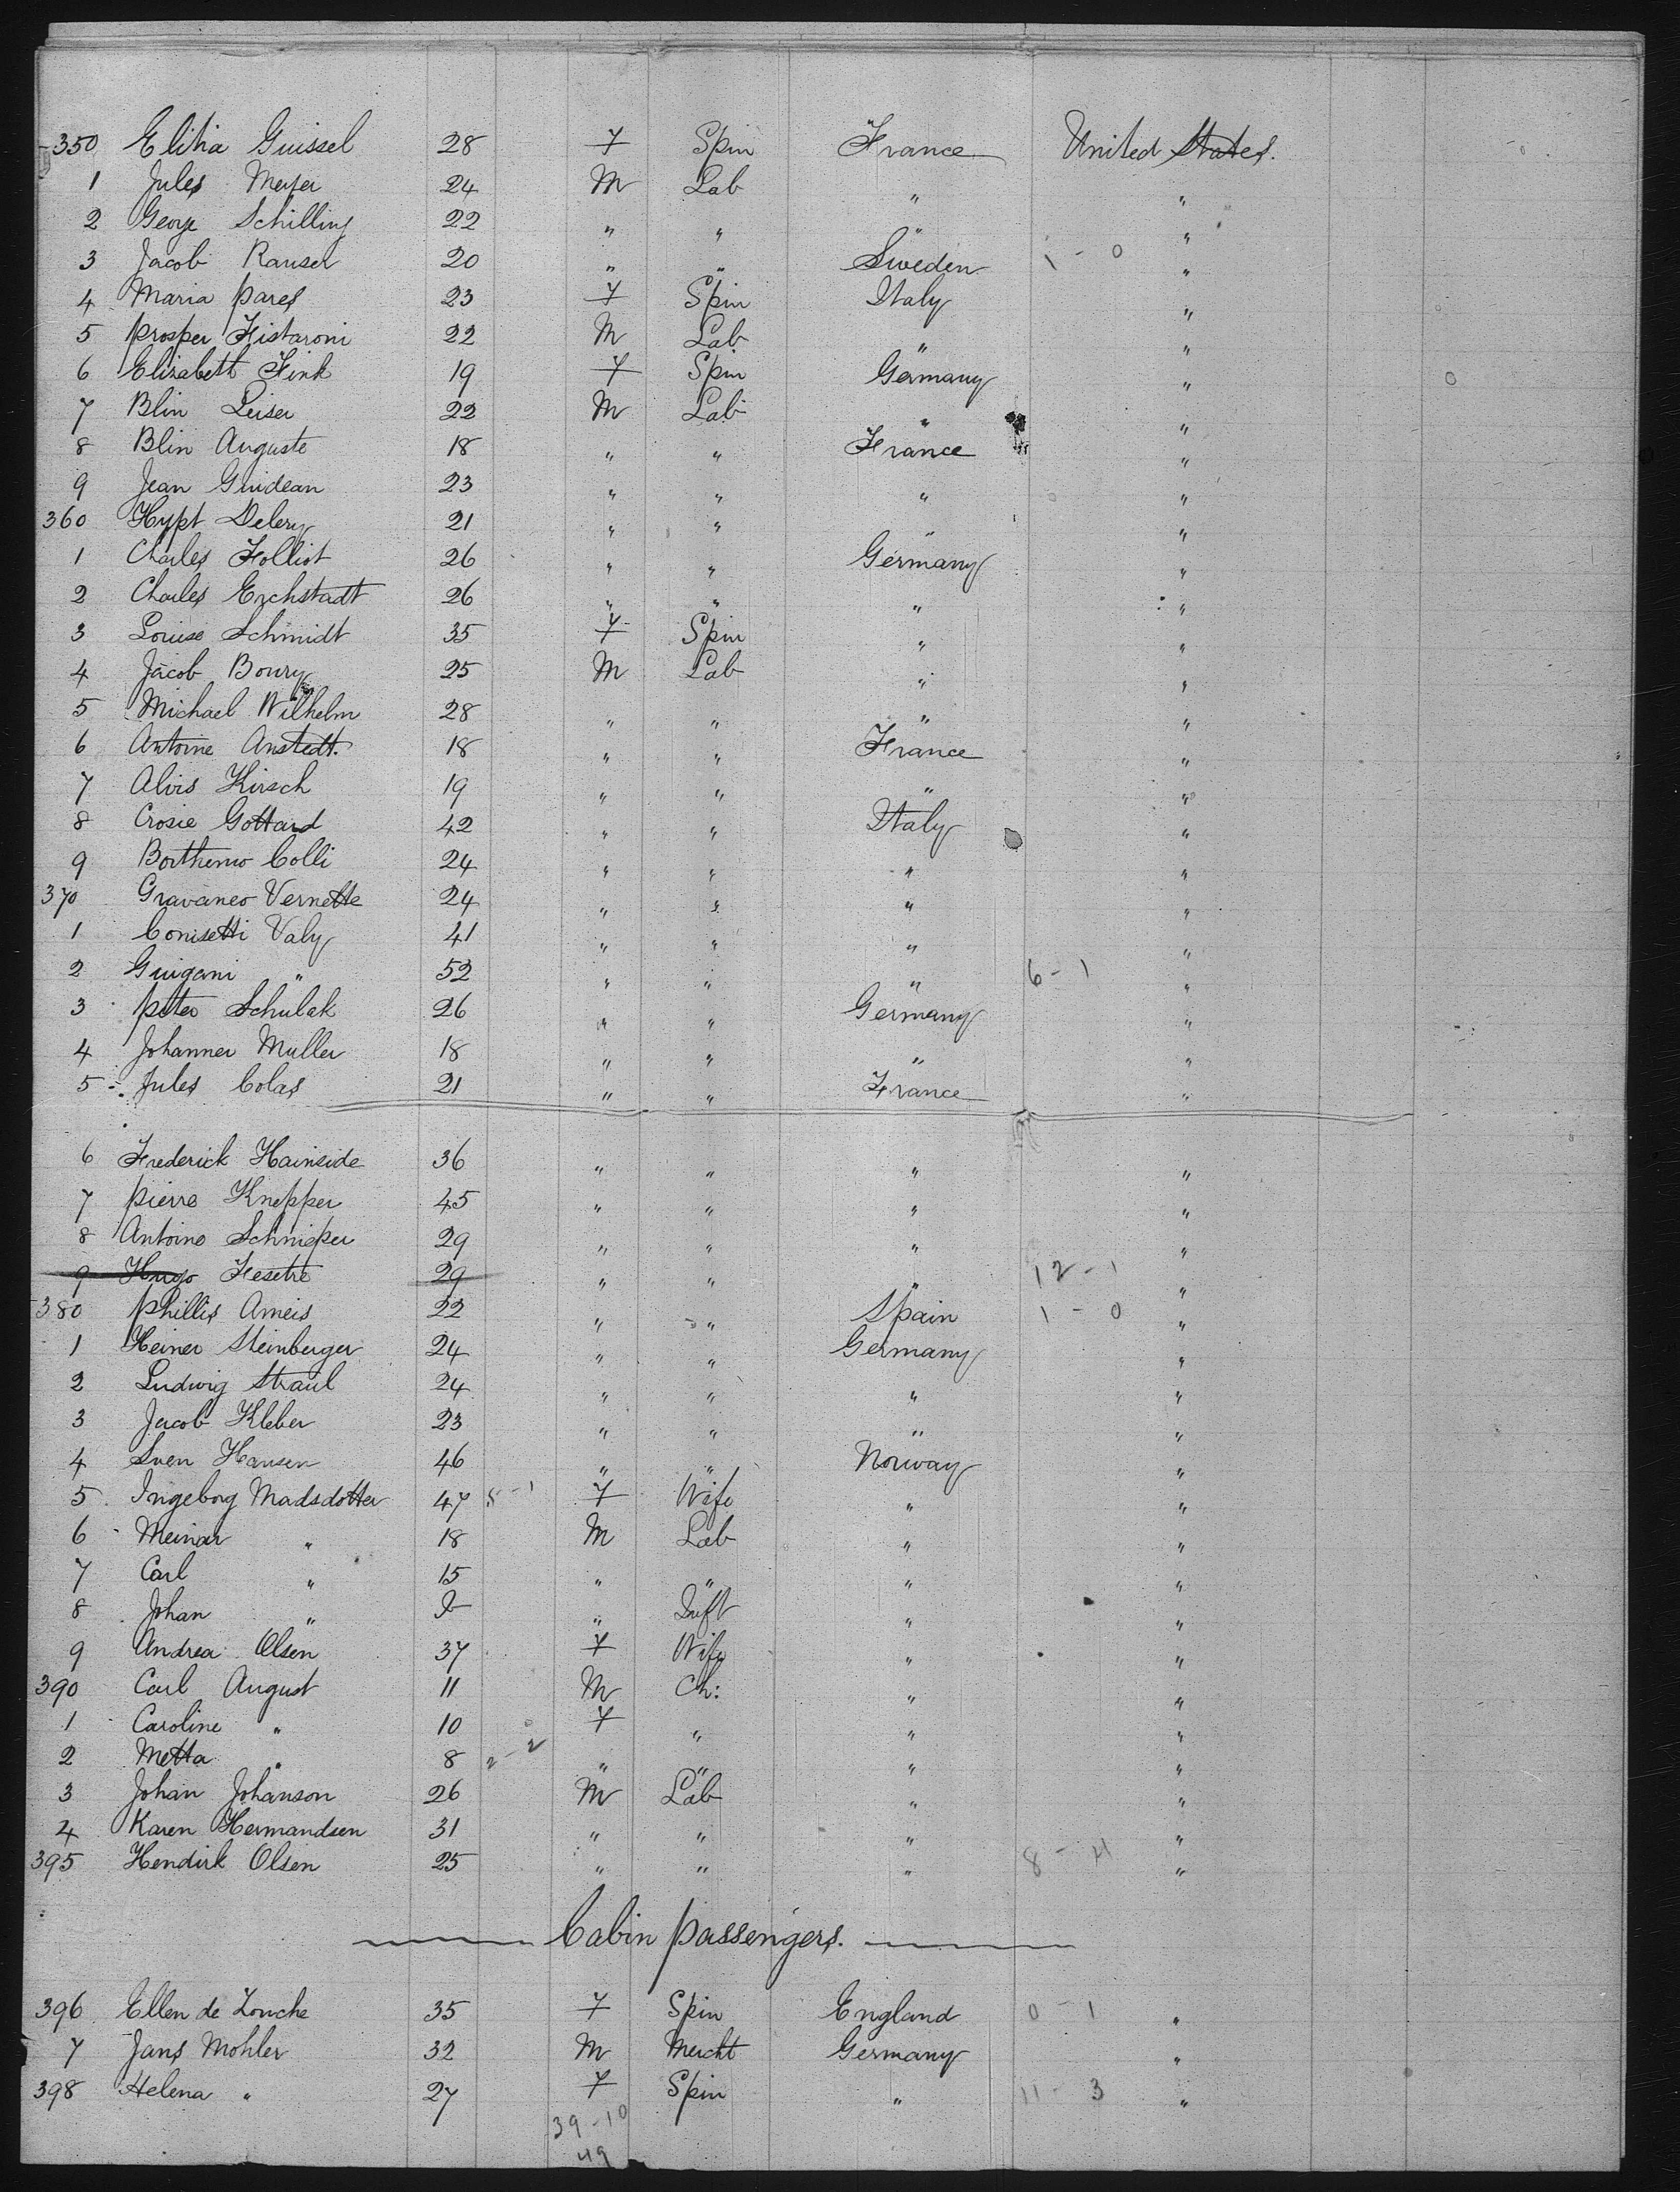 350 Elitia Guissel 28 F Spin France United States.
1 Jules Meyer 24 M Lab " "
2 George Schilling 22 " " " "
3 Jacob Rauser 20 " " Sweden 1 - 0 "
4 Maria Pares 23 F Spin Italy "
5 Prosper Fistaroni 22 M Lab " "
6 Elizabeth Fink 19 F Spin Germany "
7 Blin Leiser 22 M Lab " "
8 Blin Auguste 18 " " France "
9 Jean Guidean 23 " " " "
360 Hypt Delery 21 " " " "
1 Charles Folliot 26 " " Germany "
2 Charles Erchstadt 26 " " " "
3 Louise Schmidt 35 F Spin " "
4 Jacob Boury 25 M Lab " "
5 Michael Wilhelm 28 " " " "
6 Antoine Anstedt. 18 " " France "
7 Alois Kirsch 19 " " " "
8 Crosie Gottard 42 " " Italy "
9 Borthemo Colli 24 " " " "
370 Gravaneo Vernette 24 " " " "
1 Conisetti Valy 41 " " " "
2 Guigani " 52 " " " 6 - 1 "
3 Peter Schulek 26 " " Germany "
4 Johanner Muller 18 " " " "
5 Jules Colas 21 " " France "
6 Frederick Hainside 36 " " " "
7 Pierre Knepper 45 " " " "
8 Antoine Schnieper 29 " " " "
9 Hugo Fesetre 29 " " " 12 - 1 "
380 Phillis Ameis 22 " " Spain 1 - 0 "
1 Heiner Steinberger 24 " " Germany "
2 Ludwig Straul 24 " " " "
3 Jacob Kleber 23 " " " "
4 Sven Hansen 46 " " Norway "
5 Ingeborg Madsdotter 47 8 - 1 F Wife " "
6 Meinar " 18 M Lab " "
7 Carl " 15 " " " "
8 Johan " " Inft " "
9 Andrea Olsen 37 F Wife " "
390 Carl August 11 M Ch: " "
1 Caroline " 10 F " " "
2 Metta " 8 2 - 2 " " " "
3 Johan Johanson 26 M Lab " "
4 Karen Hermandsen 31 " " " "
395 Hendirk Olsen 25 " " " 8 - 4 "
Cabin Passengers.
396 Ellen de Zouche 35 F Spin England 0 - 1 "
7 Jans Mohler 32 M Mercht Germany "
398 Helena " 27 F Spin " 11 - 3 "
39 - 10
49